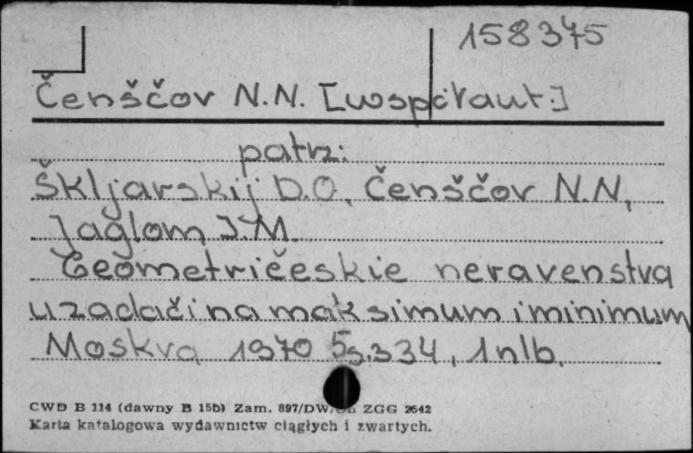 158375
Čenščov N.N. [współaut.]
patrz:
Škljarskij D.O., Čenščov N.N,
Jaglom I.M.
Geometričeskie neravenstva
i zadači na maksimum i minimum
Moskva 1970 s. 334, 1 nlb.
CWD B 114 (dawny B 15b) Zam. 897/DW/ ZGG 2642
Karta katalogowa wydawnictw ciągłych i zwartych.